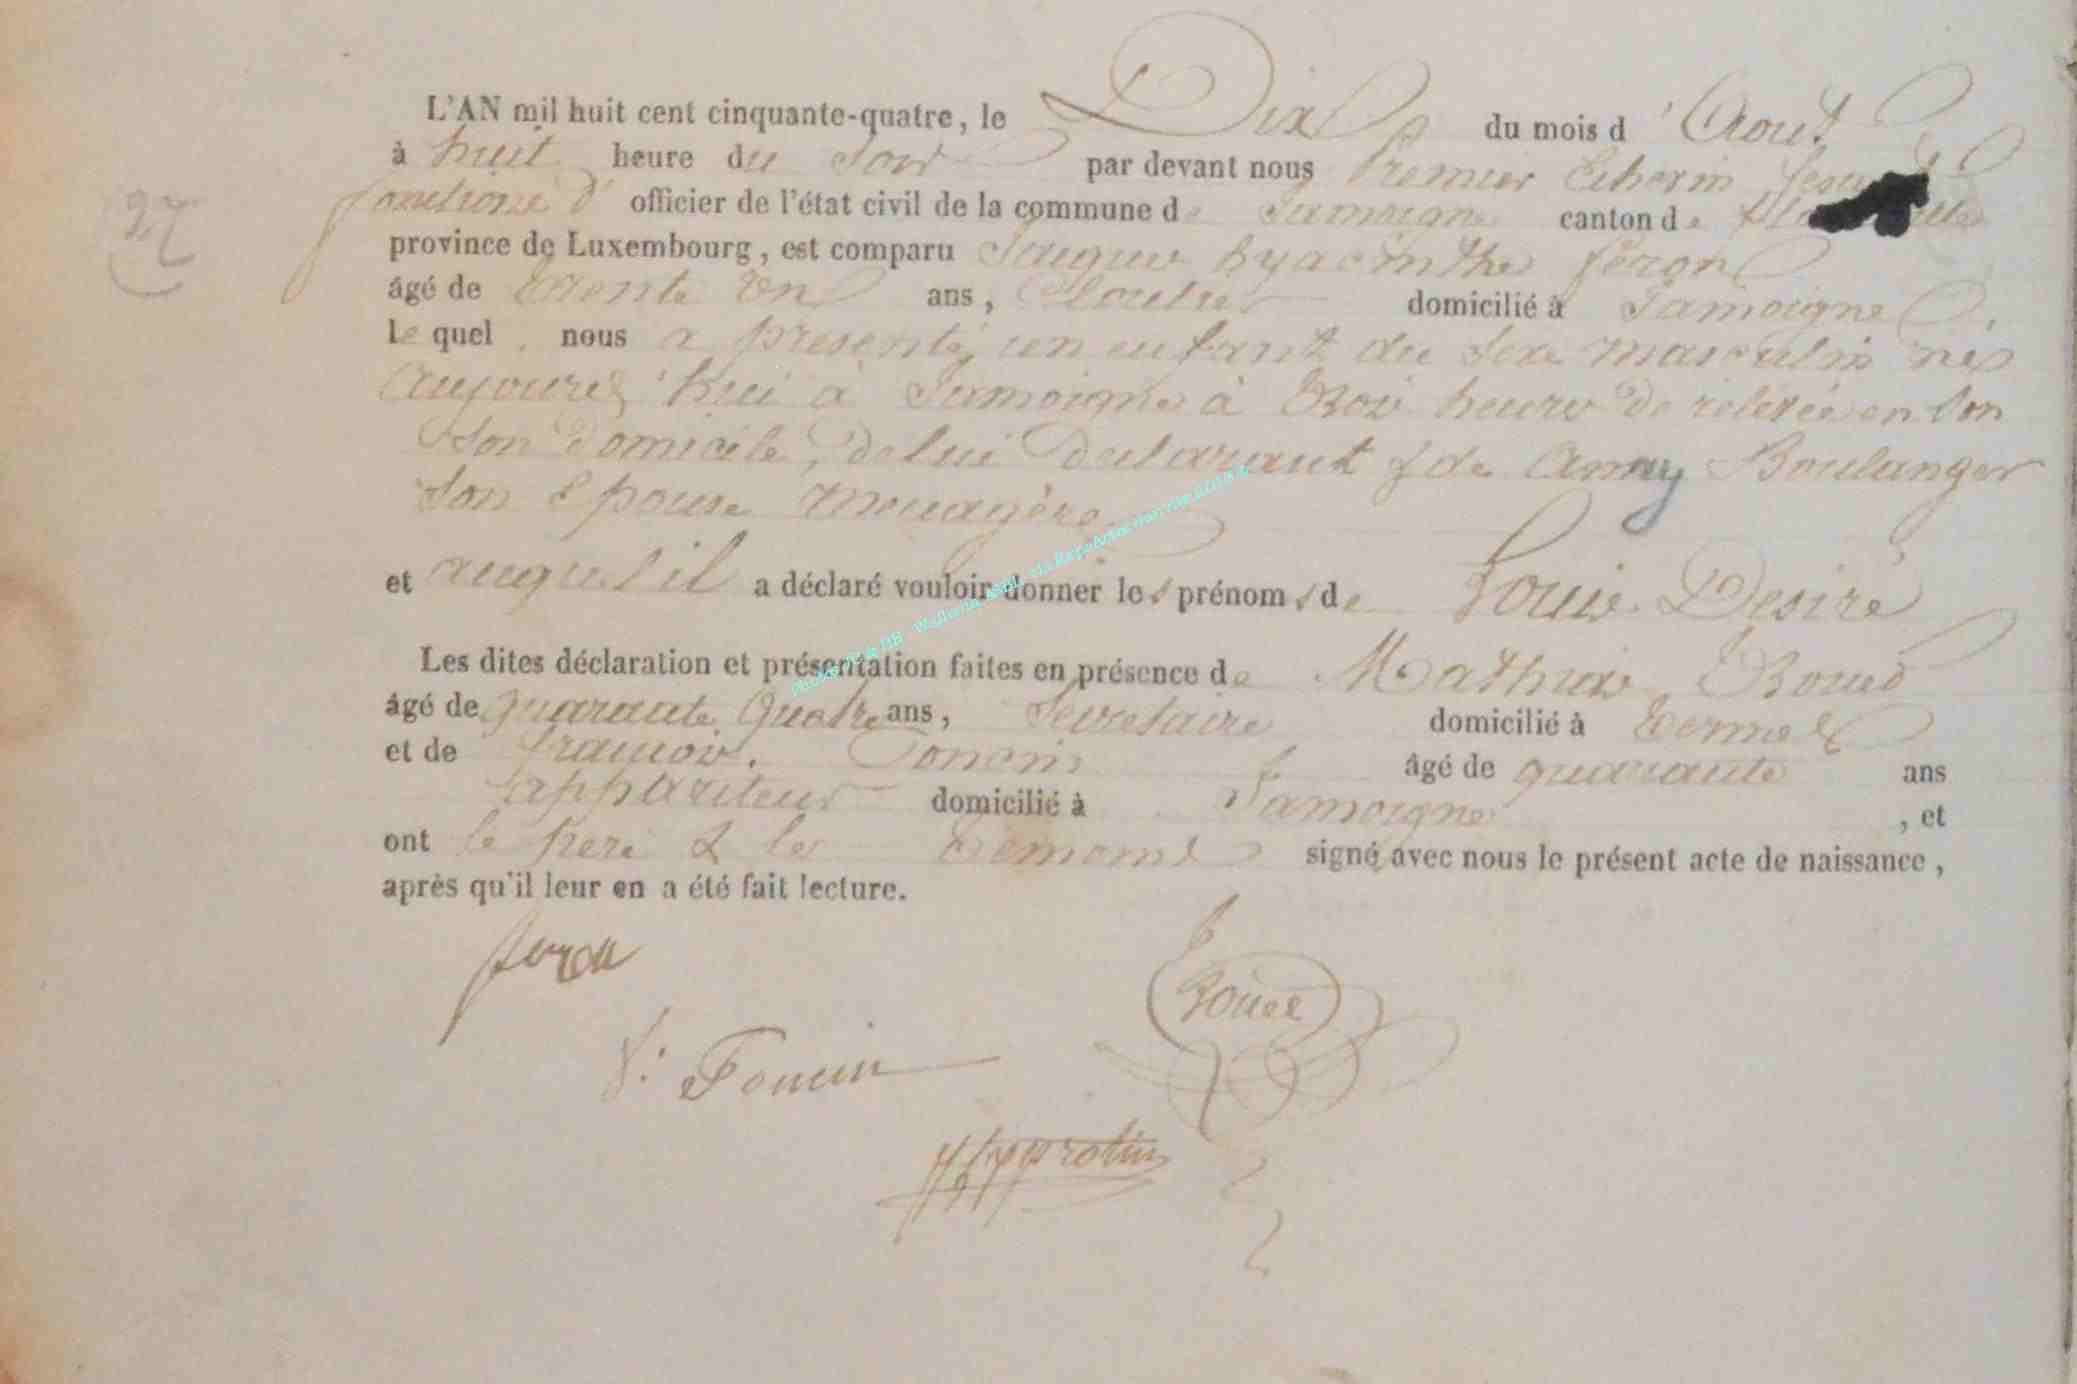 L'AN mil huit cent cinquante-quatre, le Dix du mois d'Aout
à huit heure du Soir par devant nous Premier Echevin
27 fonctions d' officier de l'état civil de la commune de Jamoigne canton de
province de Luxembourg, est comparu hyacinthe féron
âgé de trente un ans, Cloutier domicilié à Jamoigne
le quel nous a presenté un enfant du Sexe masculin né
Aujourd'hui à Jamoigne à trois heures de relevée en Son
Son domicile, de lui declarant & de Anny Boulanger
Son Epouse menagère
et auquel il a déclaré vouloir donner les prénoms de Louis Desiré
Les dites déclaration et présentation faites en présence de Mathieu Roues
âgé de quarante Quatre ans, Secretaire domicilié à Termes
et de francois Poncin âgé de quarante ans
appariteur domicilié à Jamoigne, et
ont le pere & les temoins signé avec nous le présent acte de naissance,
après qu'il leur en a été fait lecture.
feron
Roues
f: Poncin